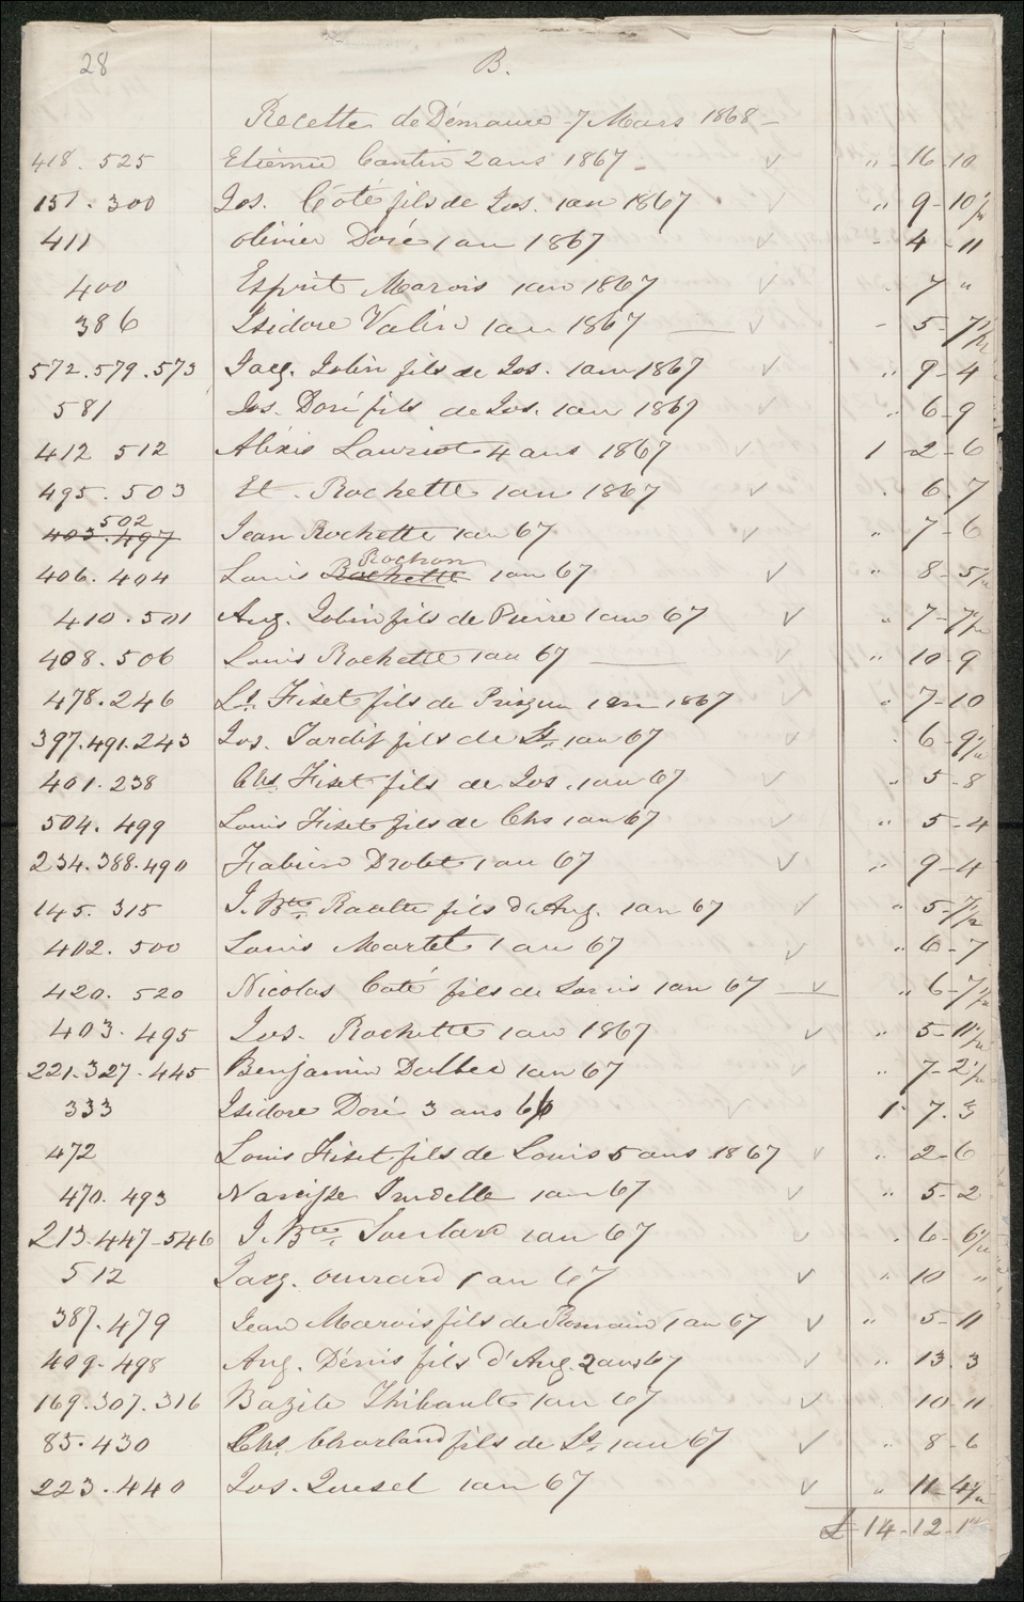 28 B.
Recette de Démaure 7 Mars 1868 -
418. 525 Etienne Cantin 2 ans 1867 - ✓ " - 16 - 10
151. 300 Jos. Côté fils de Jos. 1 an 1867 ✓ " 9 - 10 1/2
411 Olivier Doré 1 an 1867 ✓ - 4 - 11
400 Esprit Marois 1 an 1867 ✓ . 7 "
386 Isidore Valin 1 an 1867 — ✓ - 5 - 7 1/2
572. 579. 573 Jacq. Jobin fils de Jos. 1 an 1867 ✓ " 9 - 4
581 Jos. Doré fils de Jos. 1 an 1867 ✓ " 6 - 9
412 512 Aléxis Lauriot 4 ans 1867 ✓ 1 - 2 - 6
495. 503 Et. Rochette 1 an 1867 ✓ . 6 - 7
502
403. 497 Jean Rochette 1 an 67 ✓ " 7 - 6
Rochon
406. 404 Louis Rochette 1 an 67 ✓ " 8 - 5 1/2
410. 501 Aug. Jobin fils de Pierre 1 an 67 ✓ " 7 - 7 1/2
408. 506 Louis Rochette 1 an 67 — ✓ " 10 - 9
478. 246 Ls. Fiset fils de Prisque 1 an 1867 ✓ " 7 - 10
397. 491. 243 Jos. Tardif fils de Ls. 1 an 67 ✓ . 6 - 9 1/2
401. 238 Chs Fiset fils de Jos. 1 an 67 ✓ " 5 - 8
504. 499 Louis Fiset fils de Chs 1 an 67 ✓ " 5 - 4
234. 388. 490 Fabien Drolet 1 an 67 ✓ " 9 - 4
145. 315 J. Bte. Raulte fils d'Aug. 1 an 67 ✓ " 5 - 7 1/2
402. 500 Louis Martel 1 an 67 ✓ " 6 - 7
420. 520 Nicolas Coté fils de Louis 1 an 67 — ✓ " 6 - 7 1/2
403. 495 Jos. Rochette 1 an 1867 ✓ " 5 - 11 1/2
221. 327. 445 Benjamin Dolbec 1 an 67 ✓ " 7 - 2 1/2
333 Isidore Doré 3 ans 66 ✓ 1 - 7. 3
472 Louis Fiset fils de Louis 5 ans 1867 ✓ " 2 - 6
470. 493 Narcisse Trudelle 1 an 67 ✓ " 5 - 2
213. 447 - 546 J. Bte. Soulard 1 an 67 ✓ . 6 - 6 1/2
512 Jacq. Ouvrard 1 an 67 ✓ " 10 "
387. 479 Jean Marois fils de Romain 1 an 67 ✓ " 5 - 11
409 - 498 Aug. Dénis fils d'Aug. 2 ans 67 ✓ " 13. 3
169. 307. 316 Bazile Thibault 1 an 67 ✓ 10 - 11
85. 430 Chs. Charland fils de Ls. 1 an 67 ✓ " 8 - 6
223. 440 Jos. Quesel 1 an 67 ✓ " 11 - 4 1/2
£ 14 - 12 - 1